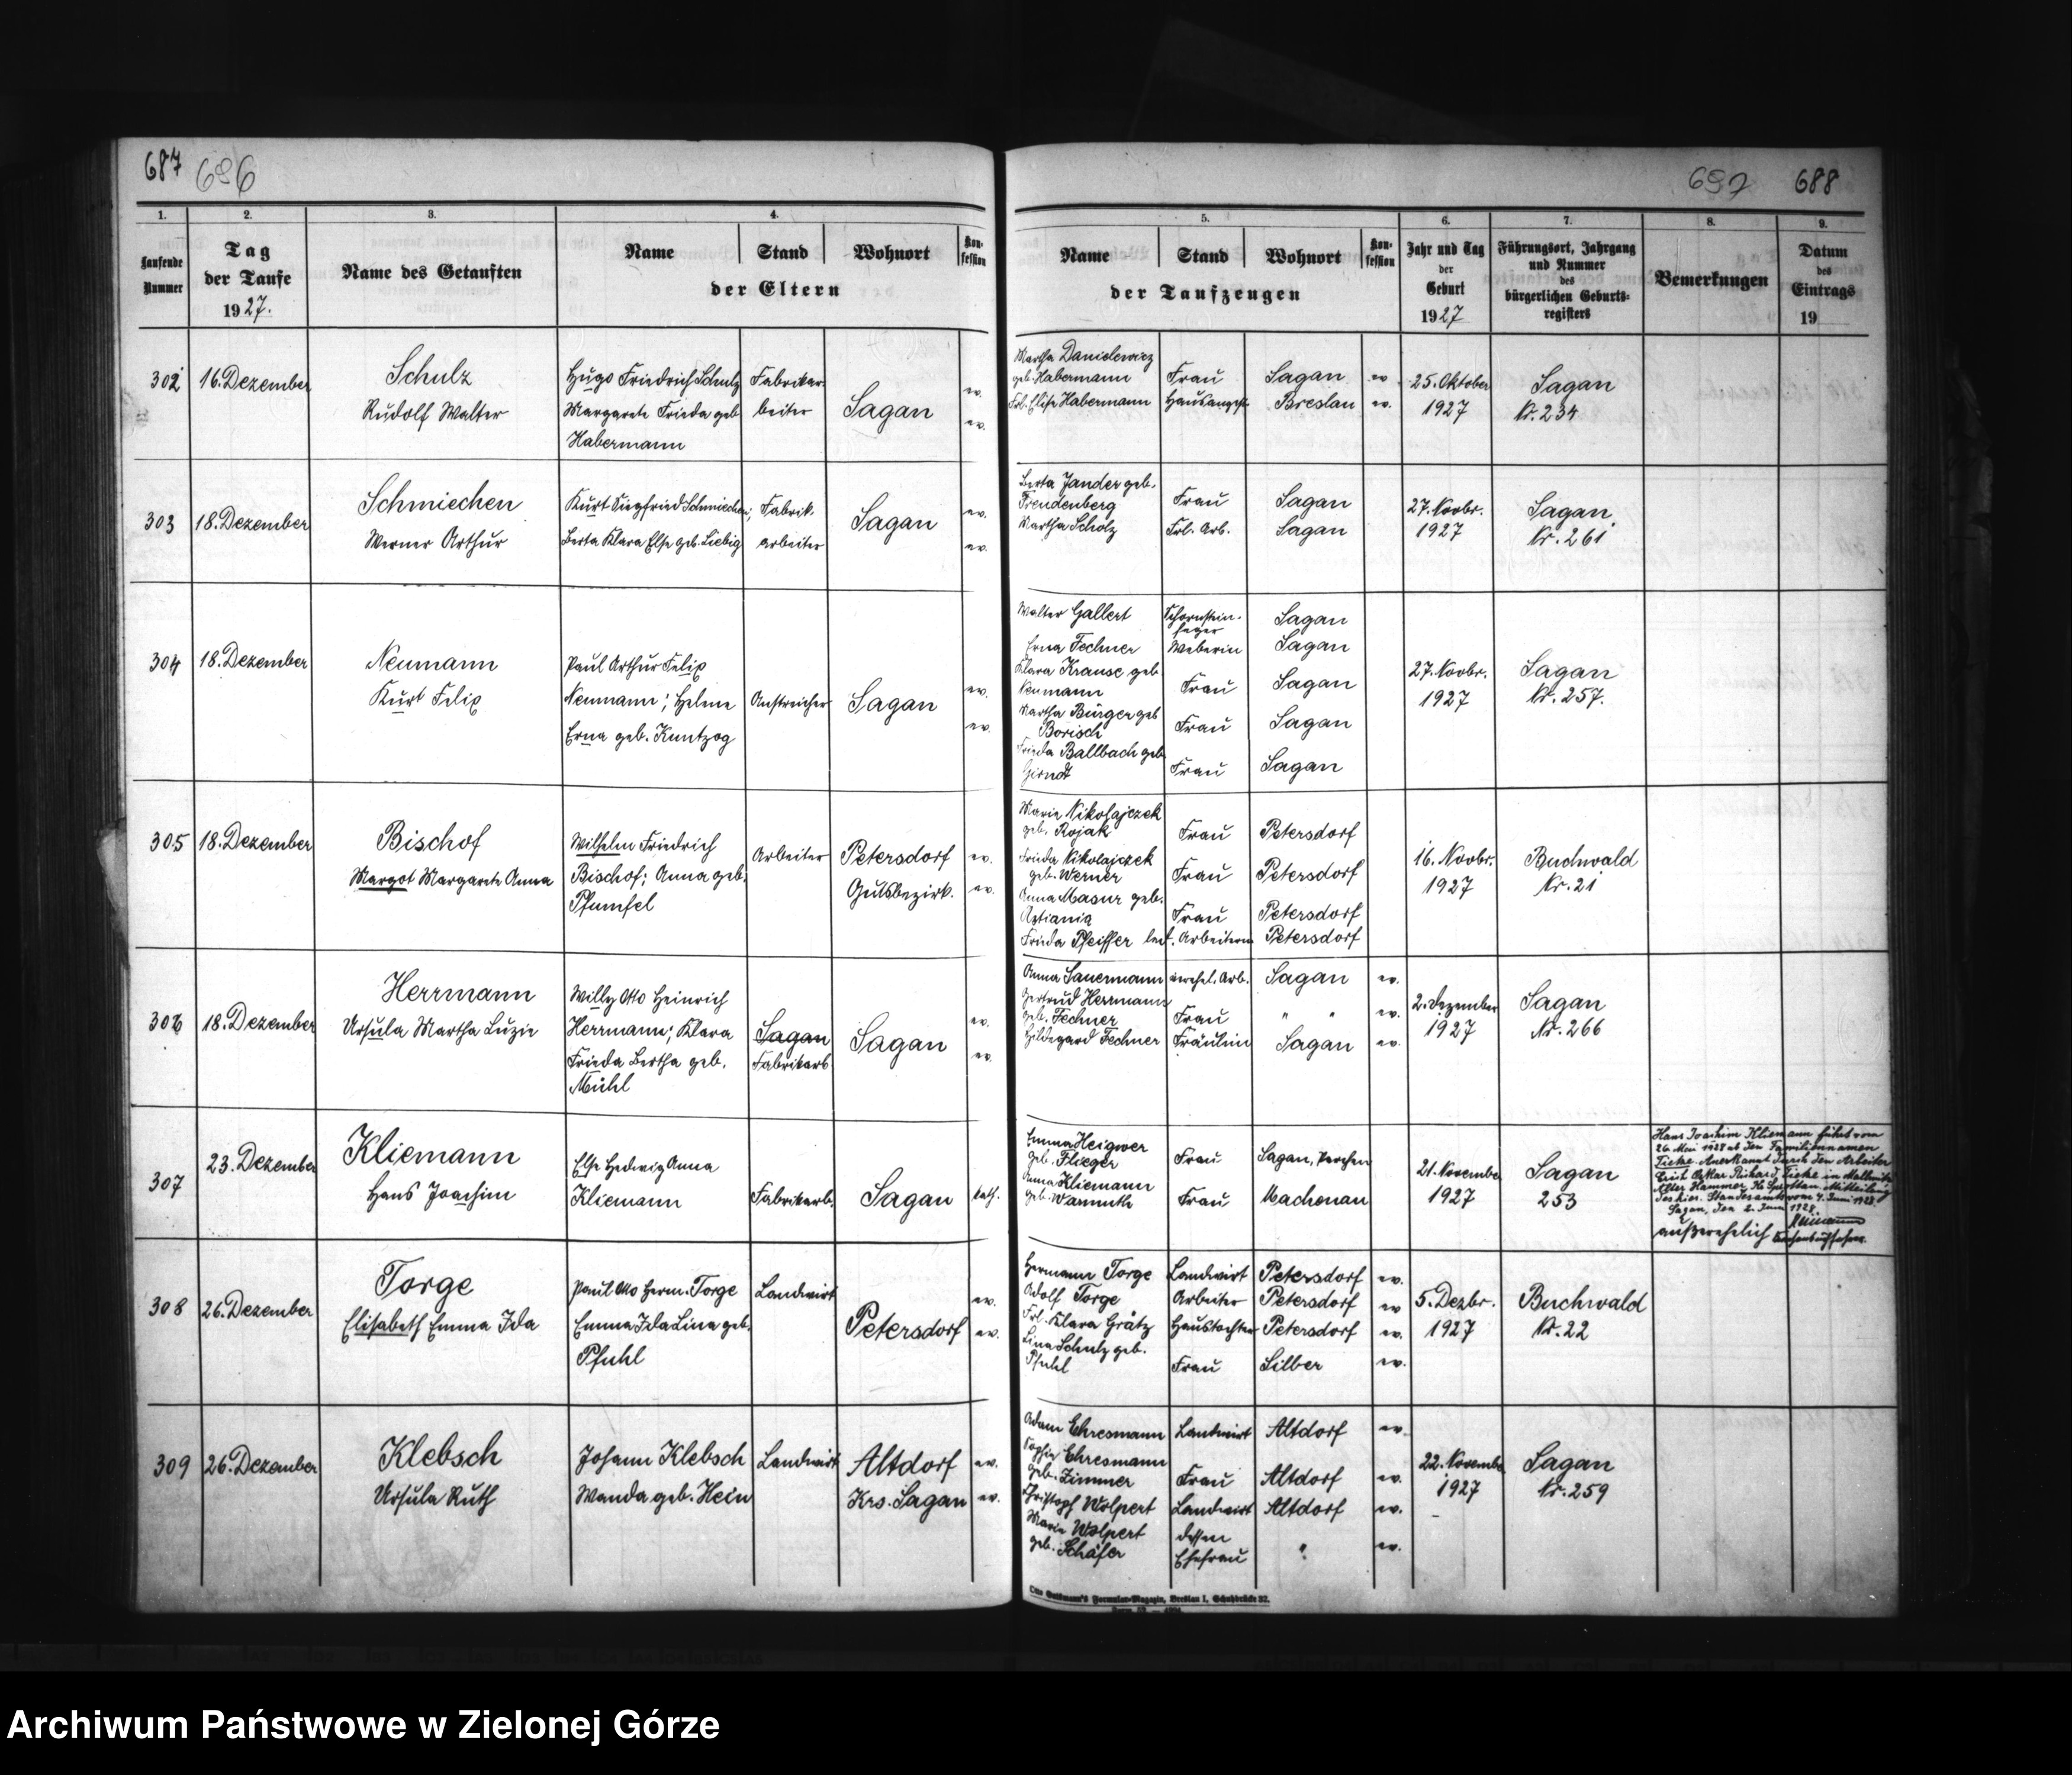 687 696
697 688
1. 2. 3. 4.
Laufende Nummer
Tag der Taufe 1927.
Name des Getauften
Name Stand Wohnort Kon-fession
der Eltern
5. 6. 7. 8. 9.
Name Stand Wohnort Kon-fession
der Taufzeugen
Jahr und Tag der Geburt 1927
Führungsort, Jahrgang und Nummer des bürgerlichen Geburts-registers
Bemerkungen
Datum des Eintrags 19
302 16. Dezember
Schulz
Rudolf Walter
Hugo Friedrich Schulz
Margarete Frieda geb
Habermann
Fabrikar-
beiter
Sagan
ev.
ev.
Martha Danielewicz
geb. Habermann Frau Sagan ev
Frl. Elise Habermann Hausangest. Breslau ev.
25. Oktober
1927
Sagan
Nr. 234
303 18. Dezember
Schmiechen
Werner Arthur
Kurt Siegfried Schmiechen;
Berta Klara Else geb. Liebig
Fabrik-
arbeiter
Sagan
ev.
ev.
Berta Jander geb.
Freudenberg Frau Sagan
Martha Scholz Frl. Arb. Sagan
27. Novbr.
1927
Sagan
Nr. 261
304 18. Dezember
Neumann
Kurt Felix
Paul Arthur Felix
Neumann; Helene
Erna geb. Kuntzog
Anstreicher
Sagan
ev.
ev.
Walter Gallert Schornstein-
feger Sagan
Erna Fechner Weberin Sagan
Klara Krause geb
Neumann Frau Sagan
Martha Bürger geb
Borisch Frau Sagan
Frieda Ballbach geb
Girndt Frau Sagan
27. Novbr.
1927
Sagan
Nr. 257.
305 18. Dezember
Bischof
Margot Margarete Anna
Wilhelm Friedrich
Bischof; Anna geb.
Pfumfel
Arbeiter
Petersdorf
Gutsbezirk.
ev.
ev.
Marie Nikolajczek
geb. Rojak Frau Petersdorf
Frieda Nikolajczek
geb. Werner Frau Petersdorf
Anna Masur geb.
Frau Petersdorf
Frieda Pfeiffer led. Arbeiterin Petersdorf
16. Novbr.
1927
Buchwald
Nr. 21
306 18. Dezember
Herrmann
Ursula Martha Luzie
Willy Otto Heinrich
Herrmann; Klara
Frieda Bertha geb.
Mühl
Sagan
Fabrikarb.
Sagan
ev.
ev.
Anna Sauermann verehel. Arb. Sagan ev.
Gertrud Herrmann
geb. Fechner Frau " " ev.
Hildegard Fechner Fräulein Sagan ev.
2. Dezember
1927
Sagan
Nr. 266
307 23. Dezember
Kliemann
Hans Joachim
Else Hedwig Anna
Kliemann
Fabrikarb.
Sagan
kath.
Emma Heigwer
geb. Flieger Frau Sagan,
Anna Kliemann
geb. Warmuth Frau Machenau
21. November
1927
Sagan
253
Hans Joachim Kliemann führt vom
26. Mai 1928 ab den Familiennamen
Ticke. Anerkannt durch den Arbeiter
Erich Oskar Richard Ticke in Mallmitz
Alter Hammer, Kr. Sprottau. Mitteilung
des hies. Standesamts vom 4. Juni 1928.
Sagan, den 2. Juni 1928.
außerehelich
308 26. Dezember
Torge
Elisabeth Emma Ida
Paul Otto Herm. Torge
Emma Ida Lina geb.
Pfuhl
Landwirt
Petersdorf
ev.
ev.
Hermann Torge Landwirt Petersdorf ev.
Adolf Torge Arbeiter Petersdorf ev
Frl. Klara Grätz Haustochter Petersdorf ev.
Lina Schulz geb.
Pfuhl Frau Silber ev.
5. Dezbr.
1927
Buchwald
Nr. 22
309 26. Dezember
Klebsch
Ursula Ruth
Johann Klebsch
Wanda geb. Hein
Landwirt
Altdorf
Krs. Sagan
ev.
ev.
Adam Ehresmann Landwirt Altdorf ev.
Sophie Ehresmann
geb. Zimmer Frau Altdorf ev.
Christoph Wolpert Landwirt Altdorf ev.
Marie Wolpert dessen
geb. Schäfer Ehefrau " ev.
22. November
1927
Sagan
Nr. 259
Formular-Magazin, Breslau I, Schuhbrücke 32.
Archiwum Państwowe w Zielonej Górze